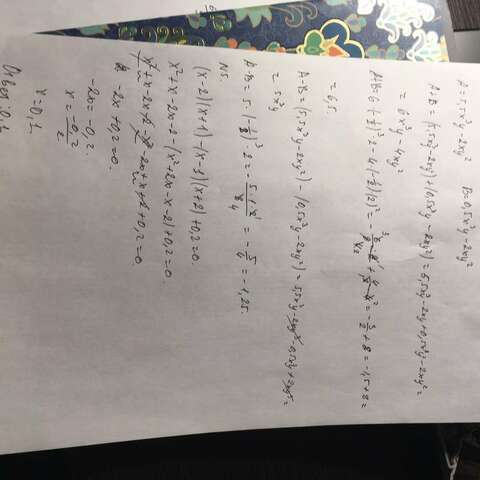 A=5,5x³y-2xy² B=0,5x³y-2xy²
A+B=(5,5x³y-2xy²)+(0,5x³y-2xy²)=5,5x³y-2xy+0,5x³y-2xy²=
=6x³y-4xy²
A+B=6·(-1/2)³·2-4·(-1/2)(2)²=-3/2+8=-1,5+8=
=6,5.
A-B=(5,5x³y-2xy²)-(0,5x³y-2xy²)=5,5x³y-2xy²-0,5x³y+2xy²=
=5x³y
A-B=5·(-1/2)³·2=-5·1/4=-5/4=-1,25.
N5.
(x-2)(x+1)-(x-1)(x+2)+0,2=0.
x²+x-2x-2-(x²+2x-x-2)+0,2=0.
x²+x-2x-2-x²-2x+x+2+0,2=0.
-2x+0,2=0.
-2x=-0,2.
x=-0,2/2
x=0,1
Ответ: 0,1